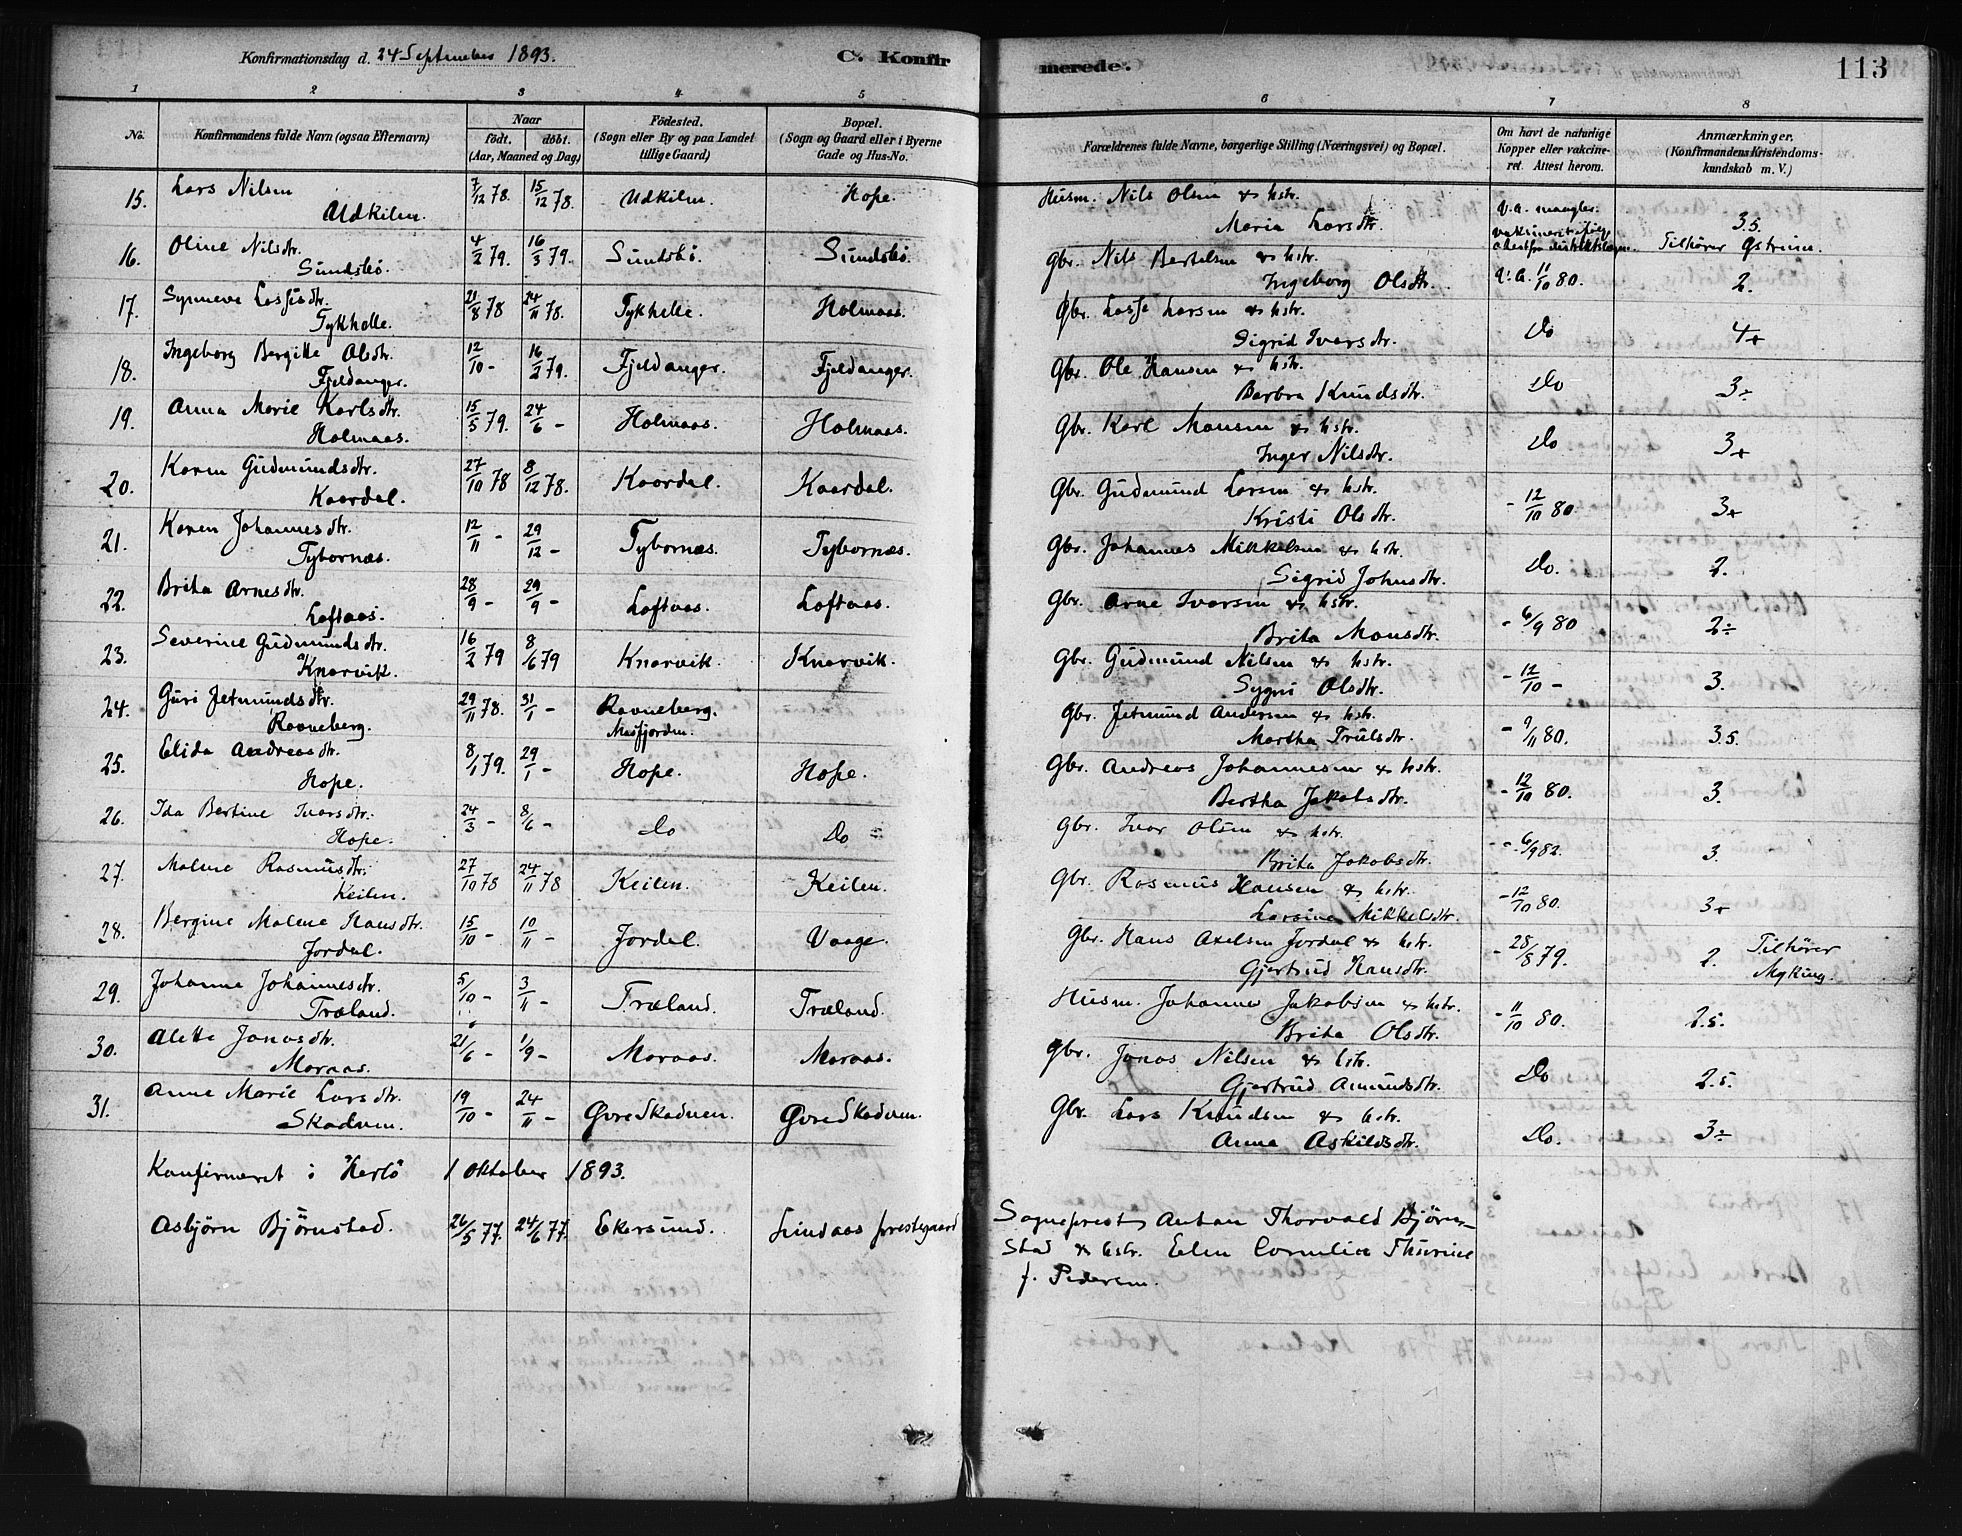 Konfirmationsdag d. 24 September 1893. C. Konfirmerede. 113
1 2 3 4 5 6 7 8
No. Konfirmandens fulde Navn (ogsaa Efternavn) Naar födt. döbt. (Aar, Maaned og Dag) Födested. (Sogn eller By og paa Landet tillige Gaard) Bopæl. (Sogn og Gaard eller i Byerne Gade og Hus-No. Forældrenes fulde Navne, borgerlige Stilling (Næringsvei) og Bopæl. Om havt de naturlige Kopper eller vakcineret. Attest herom. Anmærkninger. (Konfirmandens Kristendomskundskab m. V.)
15. Lars Nilsen Udkilen. 7/12 78. 15/12 78. Udkilen. Hope. Husm. Nils Olsen & hstr. Maria Larsdtr. v.a. mangler. 3.5. Tilhører Ostreim.
16. Oline Nilsdtr. Sundsbö. 4/2 79. 16/3 79. Sundsbö. Sundsbö. Gbr. Nils Bertelsen & hstr. Ingeborg Olsdtr. v.a. 11/10 80. 2.
17. Synneve Lassesdtr. Tykhelle. 21/8 78 24/11 78. Tykhelle. Holmaas. Gbr. Lasse Larsen & hstr. Sigrid Ivarsdtr. Do 4+
18. Ingeborg Bergitte Olsdtr. Fjeldanger. 12/10 - 16/2 79. Fjeldanger. Fjeldanger. Gbr. Ole Hansen & hstr. Barbra Knudsdtr. Do 3÷
19. Anna Marie Karlsdtr. Holmaas. 15/5 79. 24/6 - Holmaas. Holmaas. Gbr. Karl Monsen & hstr. Inger Nilsdtr. Do 3+
20. Karen Gudmundsdtr. Kaardal. 27/10 78 8/12 78. Kaardal. Kaardal. Gbr. Gudmund Larsen & hstr. Kristi Olsdtr. - 12/10 80. 3+
21. Karen Johannesdtr. Tybornæs. 12/11 - 29/12 - Tybornæs. Tybornæs. Gbr. Johannes Mikkelsen & hstr. Sigrid Johnsdtr. Do. 2.
22. Brita Arnesdtr. Loftaas. 28/9 - 29/9 - Loftaas. Loftaas. Gbr. Arne Ivarsen & hstr. Brita Monsdtr. - 6/9 80 2÷
23. Severine Gudmundsdtr. Knarvik. 16/2 79 8/6 79 Knarvik. Knarvik. Gbr. Gudmund Nilsen & hstr. Sygni Olsdtr. - 12/10 - 3.
24. Guri Jetmundsdtr. Ravneberg. 29/11 78. 31/1 - Ravneberg. Masfjorden. Gbr. Jetmund Andersen & hstr. Martha Trulsdtr. - 9/11 80. 3.5.
25. Elida Andreasdtr. Hope. 8/1 79. 29/1 - Hope. Hope. Gbr. Andreas Johannesen & hstr. Bertha Jakobsdtr. - 12/10 80. 3.
26. Ida Bertine Ivarsdtr. Hope. 24/3 - 8/6 - Do Do Gbr. Ivar Olsen & hstr. Brita Jakobsdtr. - 6/9 82. 3.
27. Malene Rasmusdtr. Keilen. 27/10 78 24/11 78 Keilen. Keilen. Gbr. Rasmus Hansen & hstr. Larsine Mikkelsdtr. - 12/10 80. 3+
28. Bergine Malene Hansdtr. Jordal. 15/10 - 10/11 - Jordal. Vaage. Gbr. Hans Axelsen Jordal & hstr. Gjertrud Hansdtr. - 28/8 79. 2. Tilhører Myking.
29. Johanna Johannesdtr. Træland. 5/10 - 3/11 - Træland. Træland. Husm. Johannes Jakobsen & hstr. Brita Olsdtr. - 11/10 80. 2.5.
30. Alette Jonasdtr. Maraas. 21/6 - 1/9 - Maraas. Maraas. Gbr. Jonas Nilsen & hstr. Gjertrud Amundsdtr. Do 2.5.
31. Anne Marie Larsdtr. Skadven. 19/10 - 24/11 - Øvre Skadven. Øvre Skadven. Gbr. Lars Knudsen & hstr. Anna Askildsdtr. Do. 3÷
Konfirmeret i Herlö 1 Oktober 1893.
Asbjörn Björnstad. 26/5 77. 24/6 77. Ekersund. Lindaas prestegaard Sogneprest Anton Thorvald Björnstad & hstr. Elen Cornelia Thurine f. Pedersen.